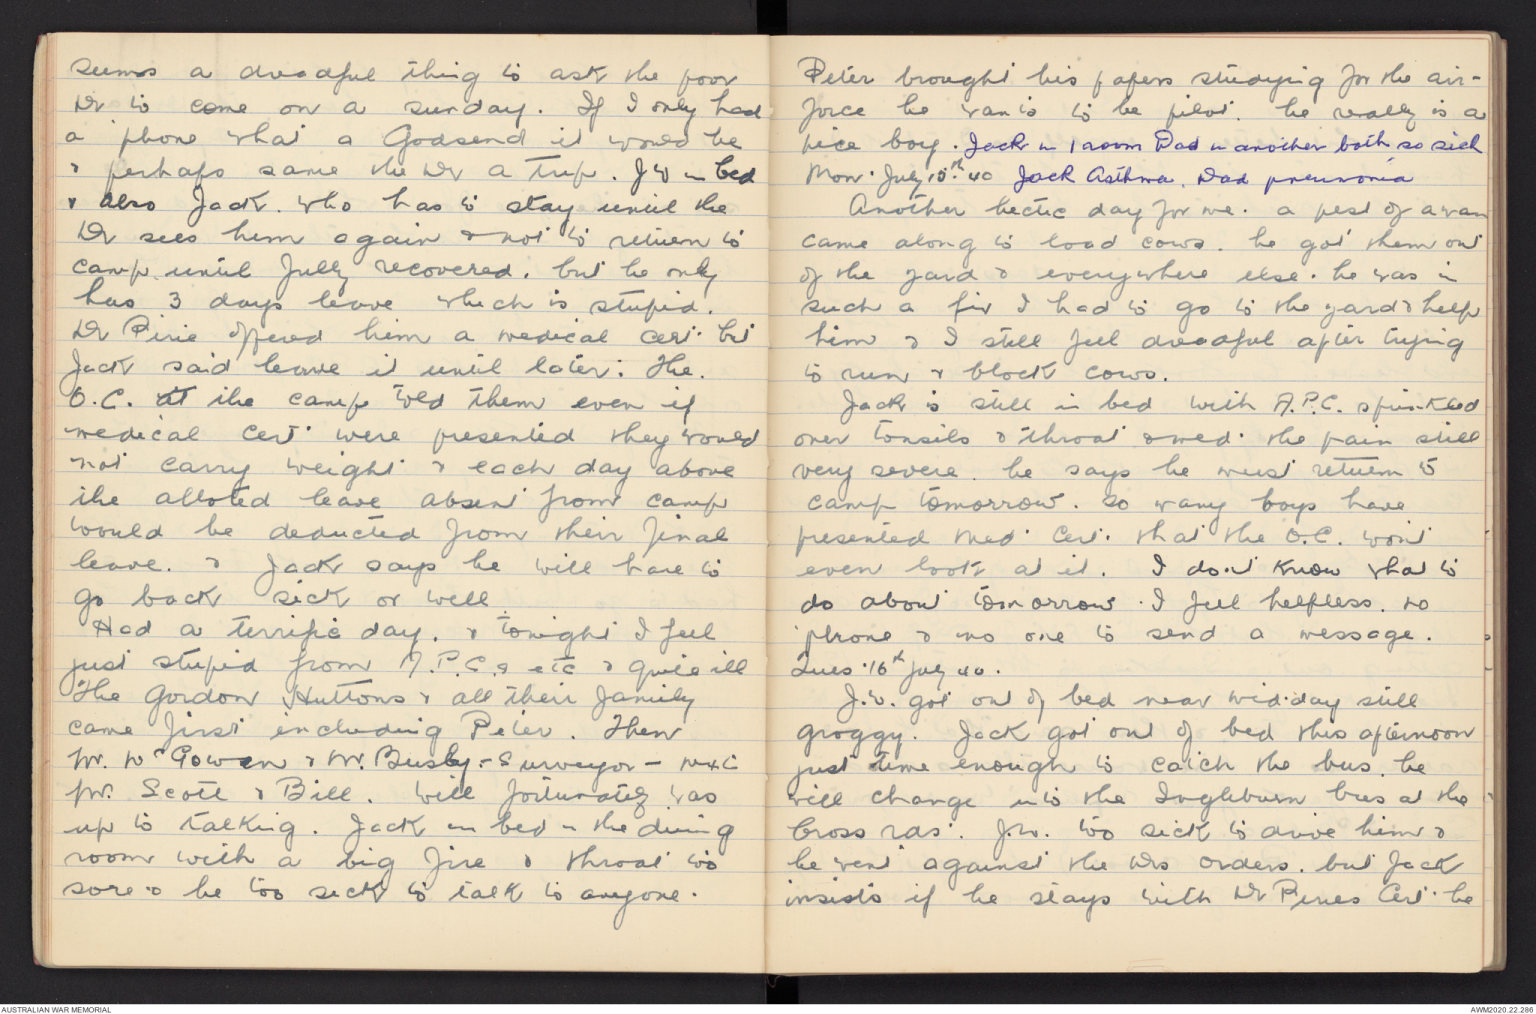 seems a dreadful thing to ask the poor
Dr to come on a sunday. If I only had
a 'phone what a Godsend it would be
& perhaps save the Dr a trip. J.W in bed
& also Jack. who has to stay until the
Dr sees him again & not to return to
camp until fully recovered. but he only
has 3 days leave which is stupid.
Dr Pirie offered him a medical cert. but
Jack said leave it until later. The.
O.C. at the camp told them even if
medical cert were presented they would
not carry weight & each day above
the alloted leave absent from camp
would be deducted from their final
leave. & Jack says he will have to
go back sick or well
Had a terrific day. & tonight I feel
just stupid from A.P.C.s etc & quite ill
The Gordon Huttons & all their family
came first including Peter. Then
Mr. McGowen & Mr. Busby - Surveyor - next
Mr. Scott & Bill. Will fortunately was
up to talking. Jack in bed in the dining
room with a big fire & throat too
sore & he too sick to talk to anyone.
Peter brought his papers studying for the air-
force he wants to be pilot. he really is a
nice boy. Jack in 1 room Dad in another both so sick
Mon. July 15th 40 Jack Asthma. Dad pneumonia
Another hectic day for me. a pest of a man
came along to load cows. he got them out
of the yard & everywhere else. he was in
such a fix I had to go to the yard & help
him & I still feel dreadful after trying
to run & block cows.
Jack is still in bed with A.P.C. sprinkled
over tonsils & throat & med. the pain still
very severe. he says he must return to
camp tomorrow. so many boys have
presented med. cert. that the O.C. won't
even look at it. I don't know what to
do about tomorrow. I feel helpless. no
'phone & no one to send a message.
Tues. 16th July 40.
J.W. got out of bed near mid-day still
groggy. Jack got out of bed this afternoon
just time enough to catch the bus. he
will change into the Ingleburn bus at the
Cross rds. J.W. too sick to drive him &
he went against the Drs orders. but Jack
insists if he stays with Dr Piries Cert. he